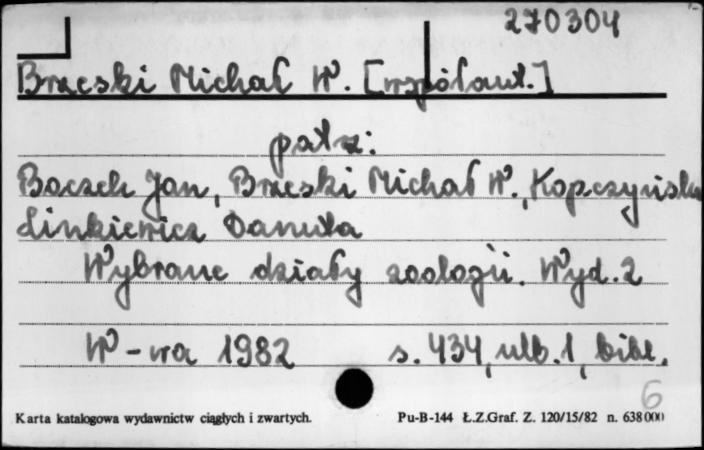 270304
Brzeski Michał W. [współaut.]
patrz:
Boczek Jan, Brzeski Michał W., Kopczyńska
Linkiewicz Danuta
Wybrane działy zoologii. Wyd. 2
W-wa 1982 s. 434, nlb. 1, bibl.
6
Karta katalogowa wydawnictw ciągłych i zwartych. Pu-B-144 Ł.Z.Graf. Z. 120/15/82 n. 638 000